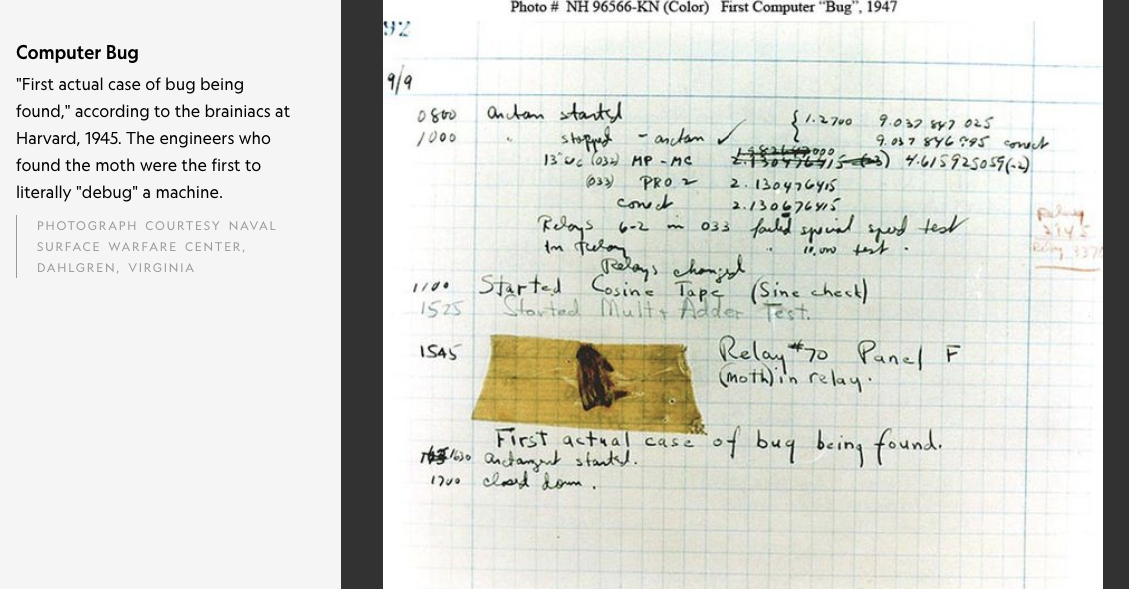 Computer Bug
"First actual case of bug being
found," according to the brainiacs at
Harvard, 1945. The engineers who
found the moth were the first to
literally "debug" a machine.
PHOTOGRAPH COURTESY NAVAL
SURFACE WARFARE CENTER,
DAHLGREN, VIRGINIA
Photo # NH 96566-KN (Color) First Computer "Bug", 1947
92
9/9
0800 Antan started
1000 " stopped - antan ✓ { 1.2700 9.037 847 025
9.037 846 995 conect
13"uc (032) MP - MC 2.130476415 (-3) 4.615925059(-2)
(033) PRO 2 2.130476415
conect 2.130676415
Relays 6-2 in 033 failed special speed test
In Relay " 10.000 test .
Relays changed
1100 Started Cosine Tape (Sine check)
1525 Started Mult + Adder Test.
1545 Relay #70 Panel F
(moth) in relay.
First actual case of bug being found.
1630 antangent started.
1700 closed down .
Relay
2145
Relay 3370